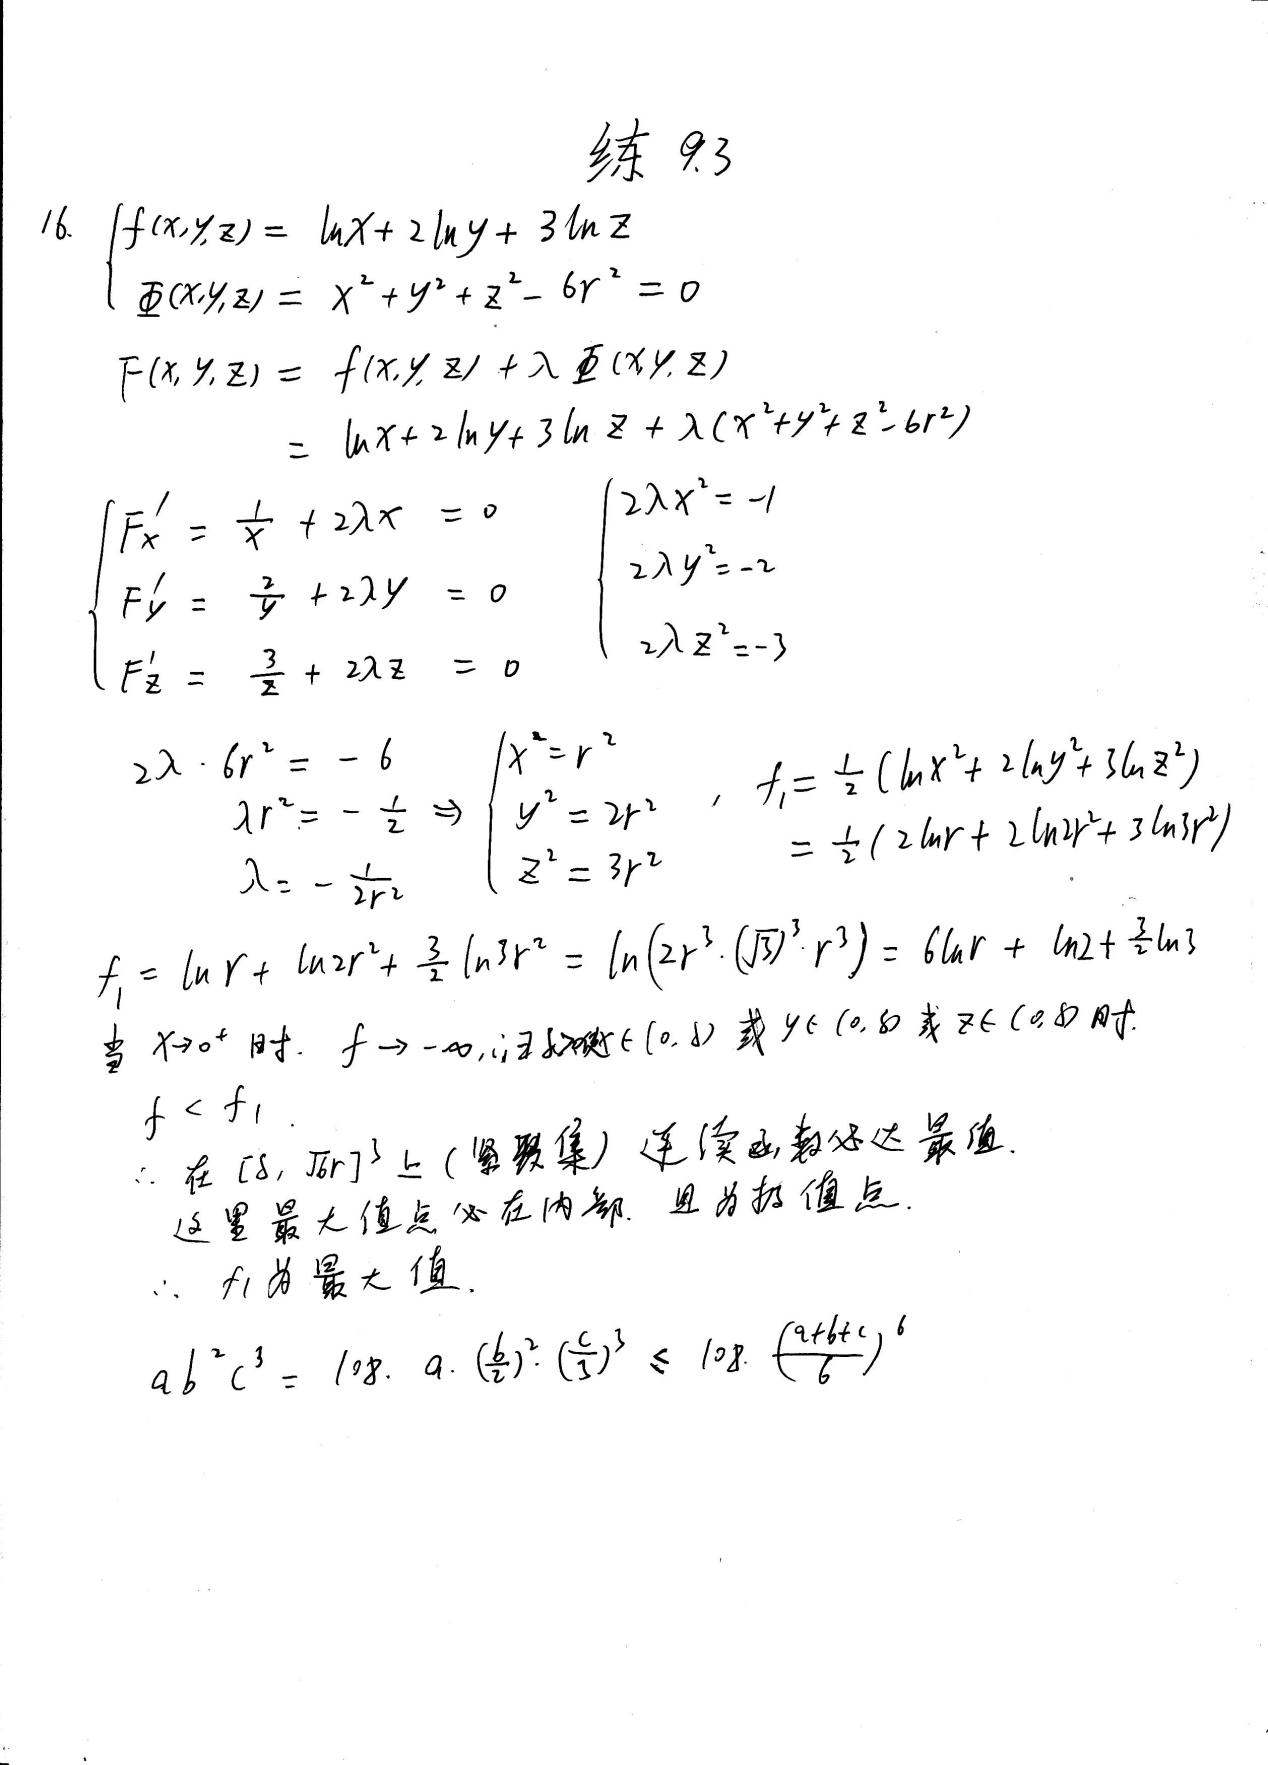 练 9.3
16. { f(x,y,z) = lnx + 2lny + 3lnz
Φ(x,y,z) = x² + y² + z² - 6r² = 0
F(x,y,z) = f(x,y,z) + λΦ(x,y,z)
= lnx + 2lny + 3lnz + λ(x²+y²+z²-6r²)
{ F'x = 1/x + 2λx = 0 { 2λx² = -1
F'y = 2/y + 2λy = 0 2λy² = -2
F'z = 3/z + 2λz = 0 2λz² = -3
2λ·6r² = -6 { x² = r² , f₁ = 1/2 (lnx² + 2lny² + 3lnz²)
λr² = -1/2 ⇒ y² = 2r² = 1/2 (2lnr + 2ln2r² + 3ln3r²)
λ = -1/2r² z² = 3r²
f₁ = lnr + ln2r² + 3/2 ln3r² = ln(2r³·(√3)³·r³) = 6lnr + ln2 + 3/2 ln3
当 x→0⁺ 时. f → -∞, ∴∃ δ>0 ∈(0,δ) 或 y∈(0,δ) 或 z∈(0,δ) 时.
f < f₁.
∴ 在 [δ, √6r]³ 上 (紧致集) 连续函数必达最值.
这里最大值点必在内部. 且为极值点.
∴ f₁ 为最大值.
ab²c³ = 108·a·(b/2)²·(c/3)³ ≤ 108·((a+b+c)/6)⁶